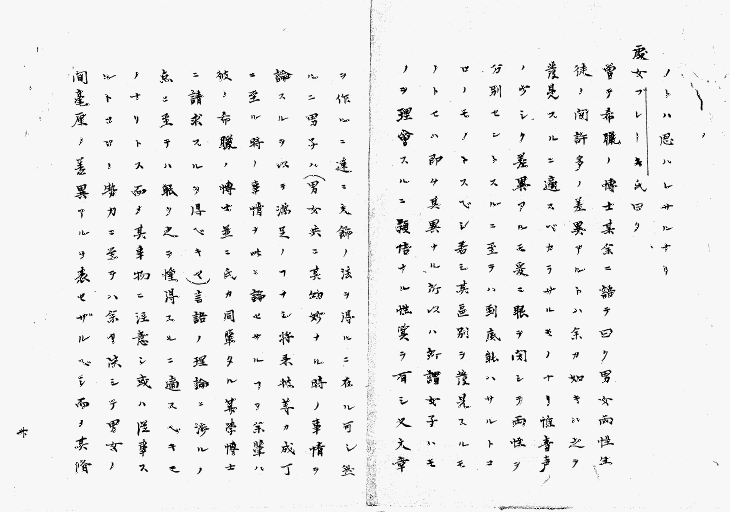 ノトハ思ハレサルナリ
處女ブレーキ氏曰ク
曾テ希臘ノ博士某余ニ語テ曰ク男女両性生
徒ノ間許多ノ差異アルトハ余カ如キハ之ヲ
發見スルニ適スベカラサルモノナリ惟音声
ノ少シク差異アルモ爰ニ眼ヲ閉シテ両性ヲ
分別セントスルニ至テハ到底能ハサルトコ
ロノモノトスベシ若シ其區別ヲ發見スルモ
ノトセハ即タ其異ナル所以ハ所謂女子ハモ
ノヲ理會スルニ頴悟ナル性質ヲ有シ又文章
ヲ作ルニ達ニ文飾ノ法ヲ得ルニ在ル可シ然
ルニ男子ハ(男女共ニ其幼妙ナル時ノ事情ヲ
論スルヲ以テ満足ノフナシ将来彼等カ成丁
ニ至ル時ノ事情ヲ此ニ論セサルフヲ余輩ハ
彼ノ希臘ノ博士並ニ氏カ同輩タル某学博士
ニ請求スルヲ得ベキヤ)言語ノ理論ニ渉ルノ
点ニ至テハ能ク之ヲ慬得スルニ適スベキモ
ノナリトス而タ其事物ニ注意シ或ハ従事ス
ルトコロノ勢力ニ至テハ余タ决シテ男女ノ
間毫厘ノ差異アルヲ表セザルベシ而タ其階